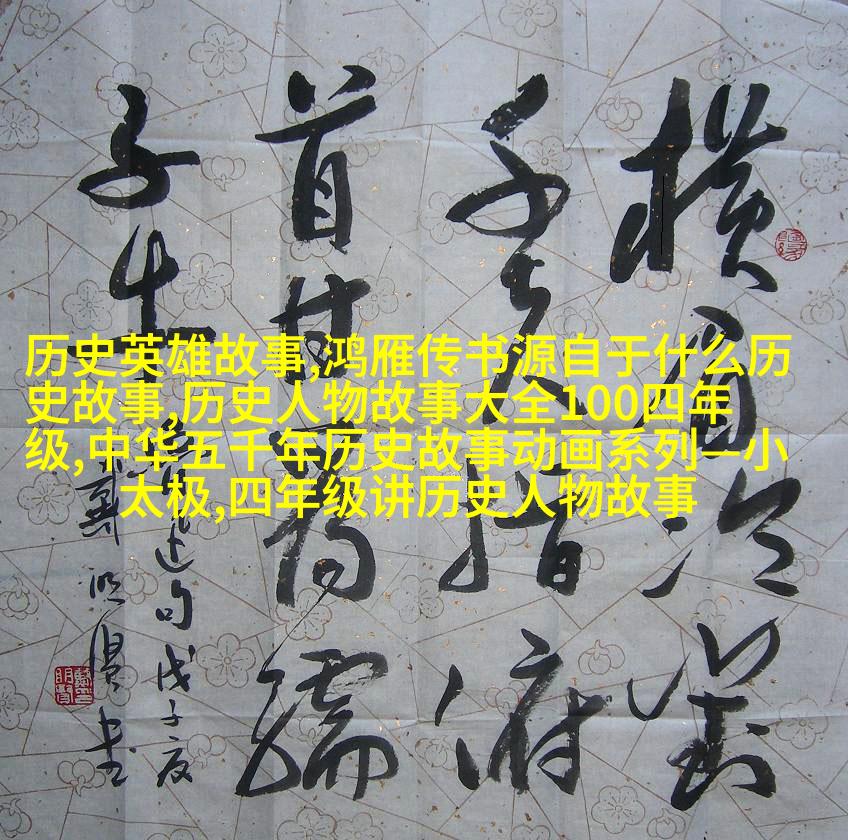 历史英雄故事,鸿雁传书源自于什么历
史故事,历史人物故事大全100四年
级,中华五千年历史故事动画系列—小
太极,四年级讲历史人物故事
横眉冷對
千夫指俯
首甘為孺
子牛
迅句戊子夏
明賢书